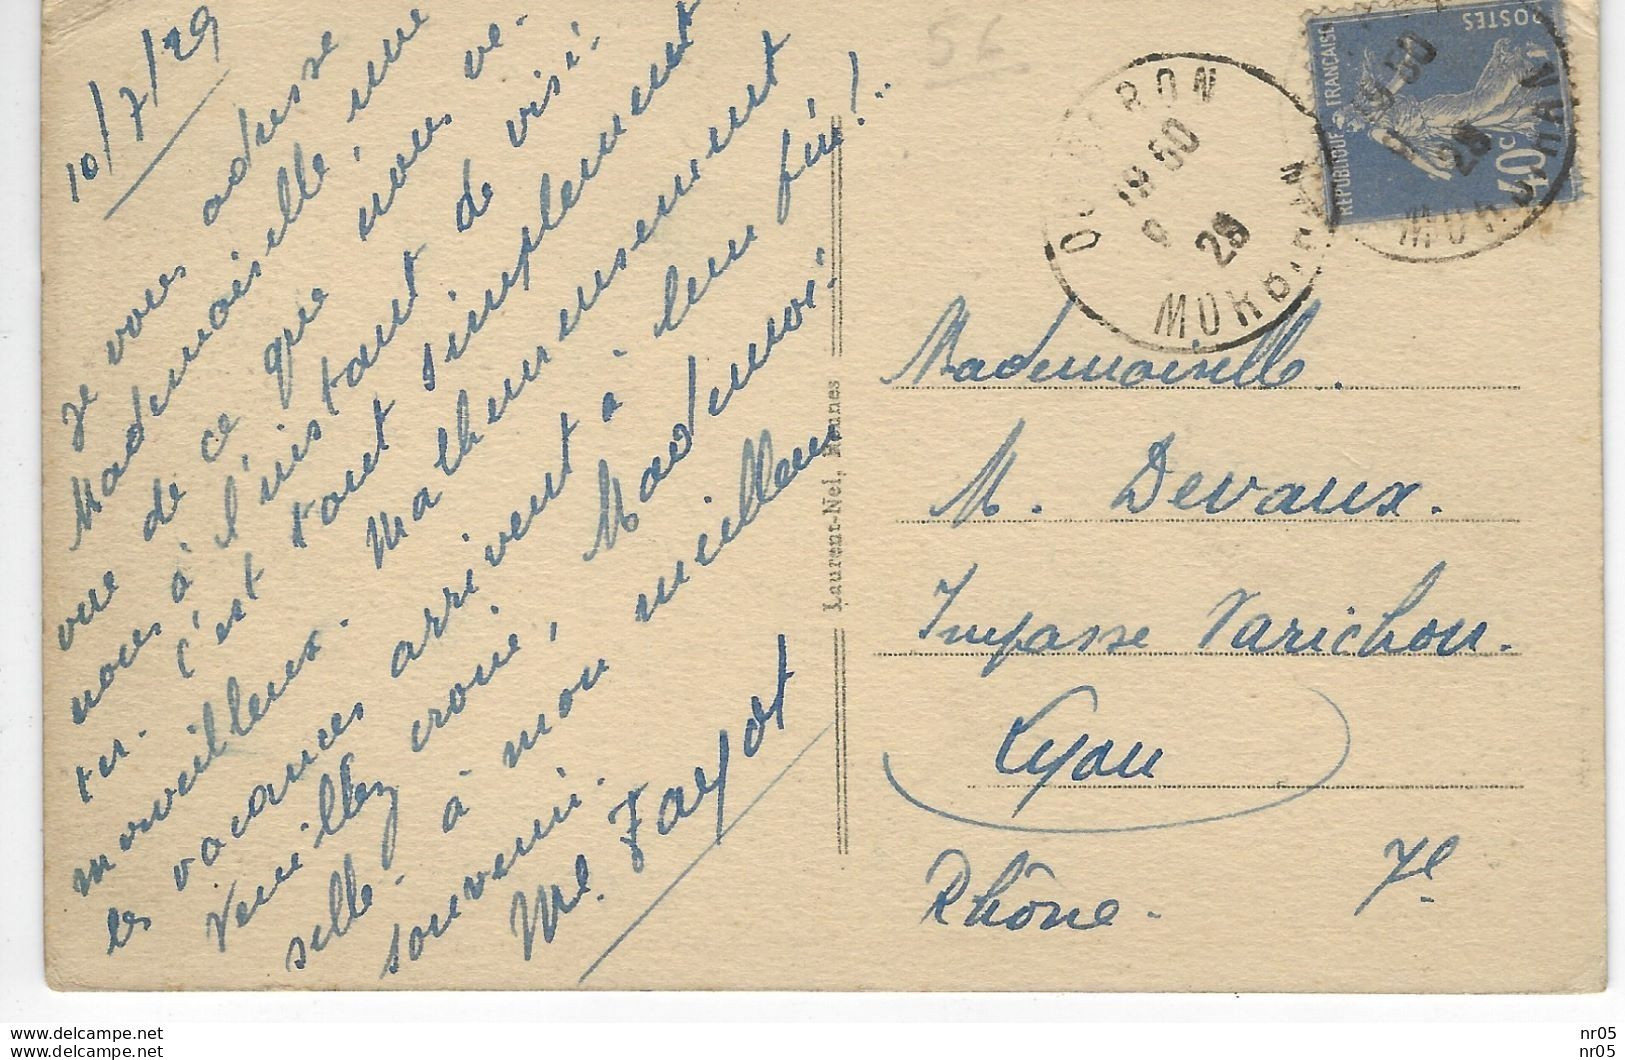 10/7/29
Je vous adresse
Mademoiselle, une
vue de ce que nous ve-
nous à l'instant de visi-
ter. C'est tout simplement
merveilleux. Malheureusement
les vacances arrivent à leur fin!..
Veuillez croire, Mademoi-
selle à mon meilleur
souvenir.
Ml. Fayot
Laurent-Nel, Rennes
56
RON
19 30
9
29
MORBIHAN
RÉPUBLIQUE FRANÇAISE
POSTES
40c
Mademoiselle.
M. Devaux.
Impasse Varichon.
Lyon
Rhône. 7e
www.delcampe.net
www.delcampe.net
nr05
nr05